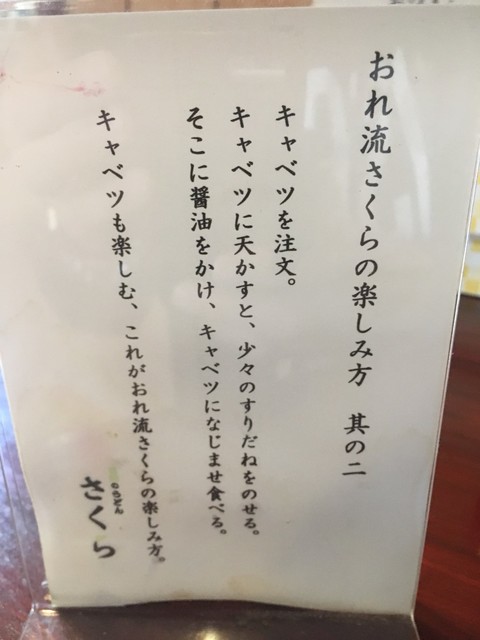 おれ流さくらの楽しみ方　其の二
キャベツを注文。
キャベツに天かすと、少々のすりだねをのせる。
そこに醤油をかけ、キャベツになじませ食べる。
キャベツも楽しむ、これがおれ流さくらの楽しみ方。
さくら